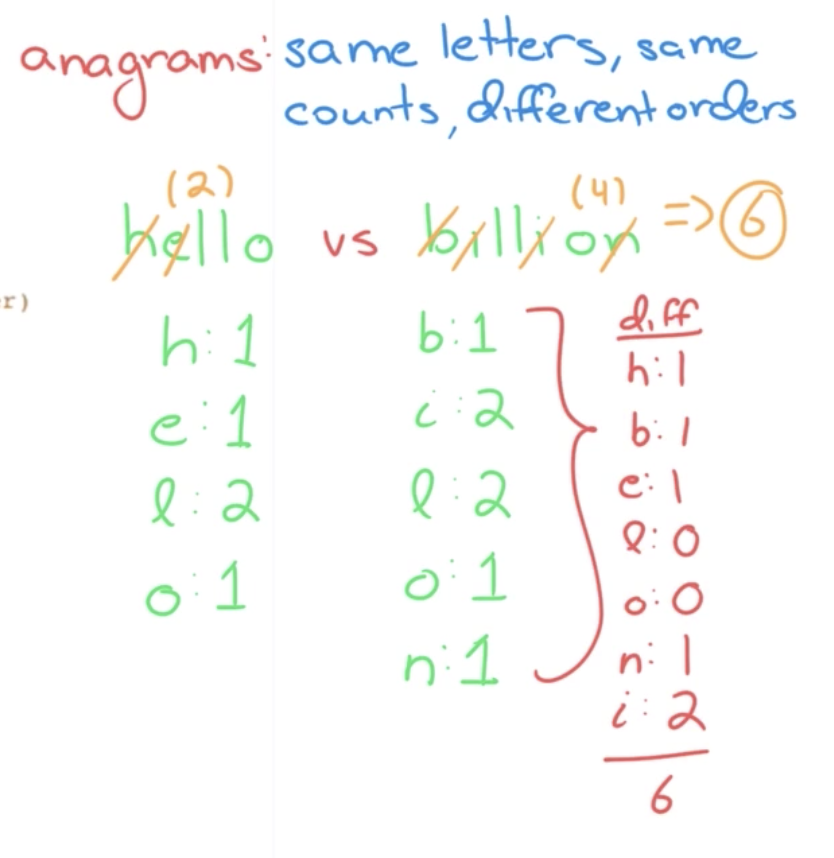 anagrams: same letters, same
counts, different orders
(2) (4)
hello vs billion => 6
r)
h:1 b:1 diff
e:1 i:2 h:1
l:2 l:2 b:1
o:1 o:1 e:1
n:1 l:0
o:0
n:1
i:2
6